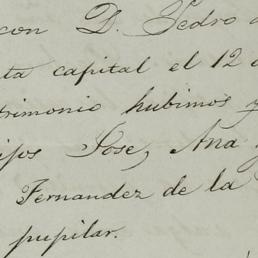 con D. Pedro
ta capital el 12 d
trimonio hubimos y
ijos Jose, Ana y
Fernandez de la
pupilar.